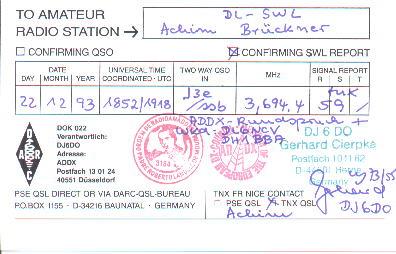 TO AMATEUR
RADIO STATION →
DL-SWL
Achim Brückner
CONFIRMING QSO
CONFIRMING SWL REPORT
DAY DATE MONTH YEAR UNIVERSAL TIME COORDINATED · UTC TWO WAY QSO IN MHz SIGNAL REPORT R S T
22 12 93 1852/1918 J3e/SSB 3,694,4 59/
ADDX-Rundspruch +
DL6NCV
DH1BBA
DOK 022
Verantwortlich:
DJ6DO
Adresse:
ADDX
Postfach 13 01 24
40551 Düsseldorf
DARC
3184
DJ 6 DO
Gerhard Cierpka
Postfach 101162
D-44601 Herne
Germany
PSE QSL DIRECT OR VIA DARC-QSL-BUREAU
P.O.BOX 1155 · D-34216 BAUNATAL · GERMANY
TNX FR NICE CONTACT
PSE QSL TNX QSL
Achim
DJ6DO